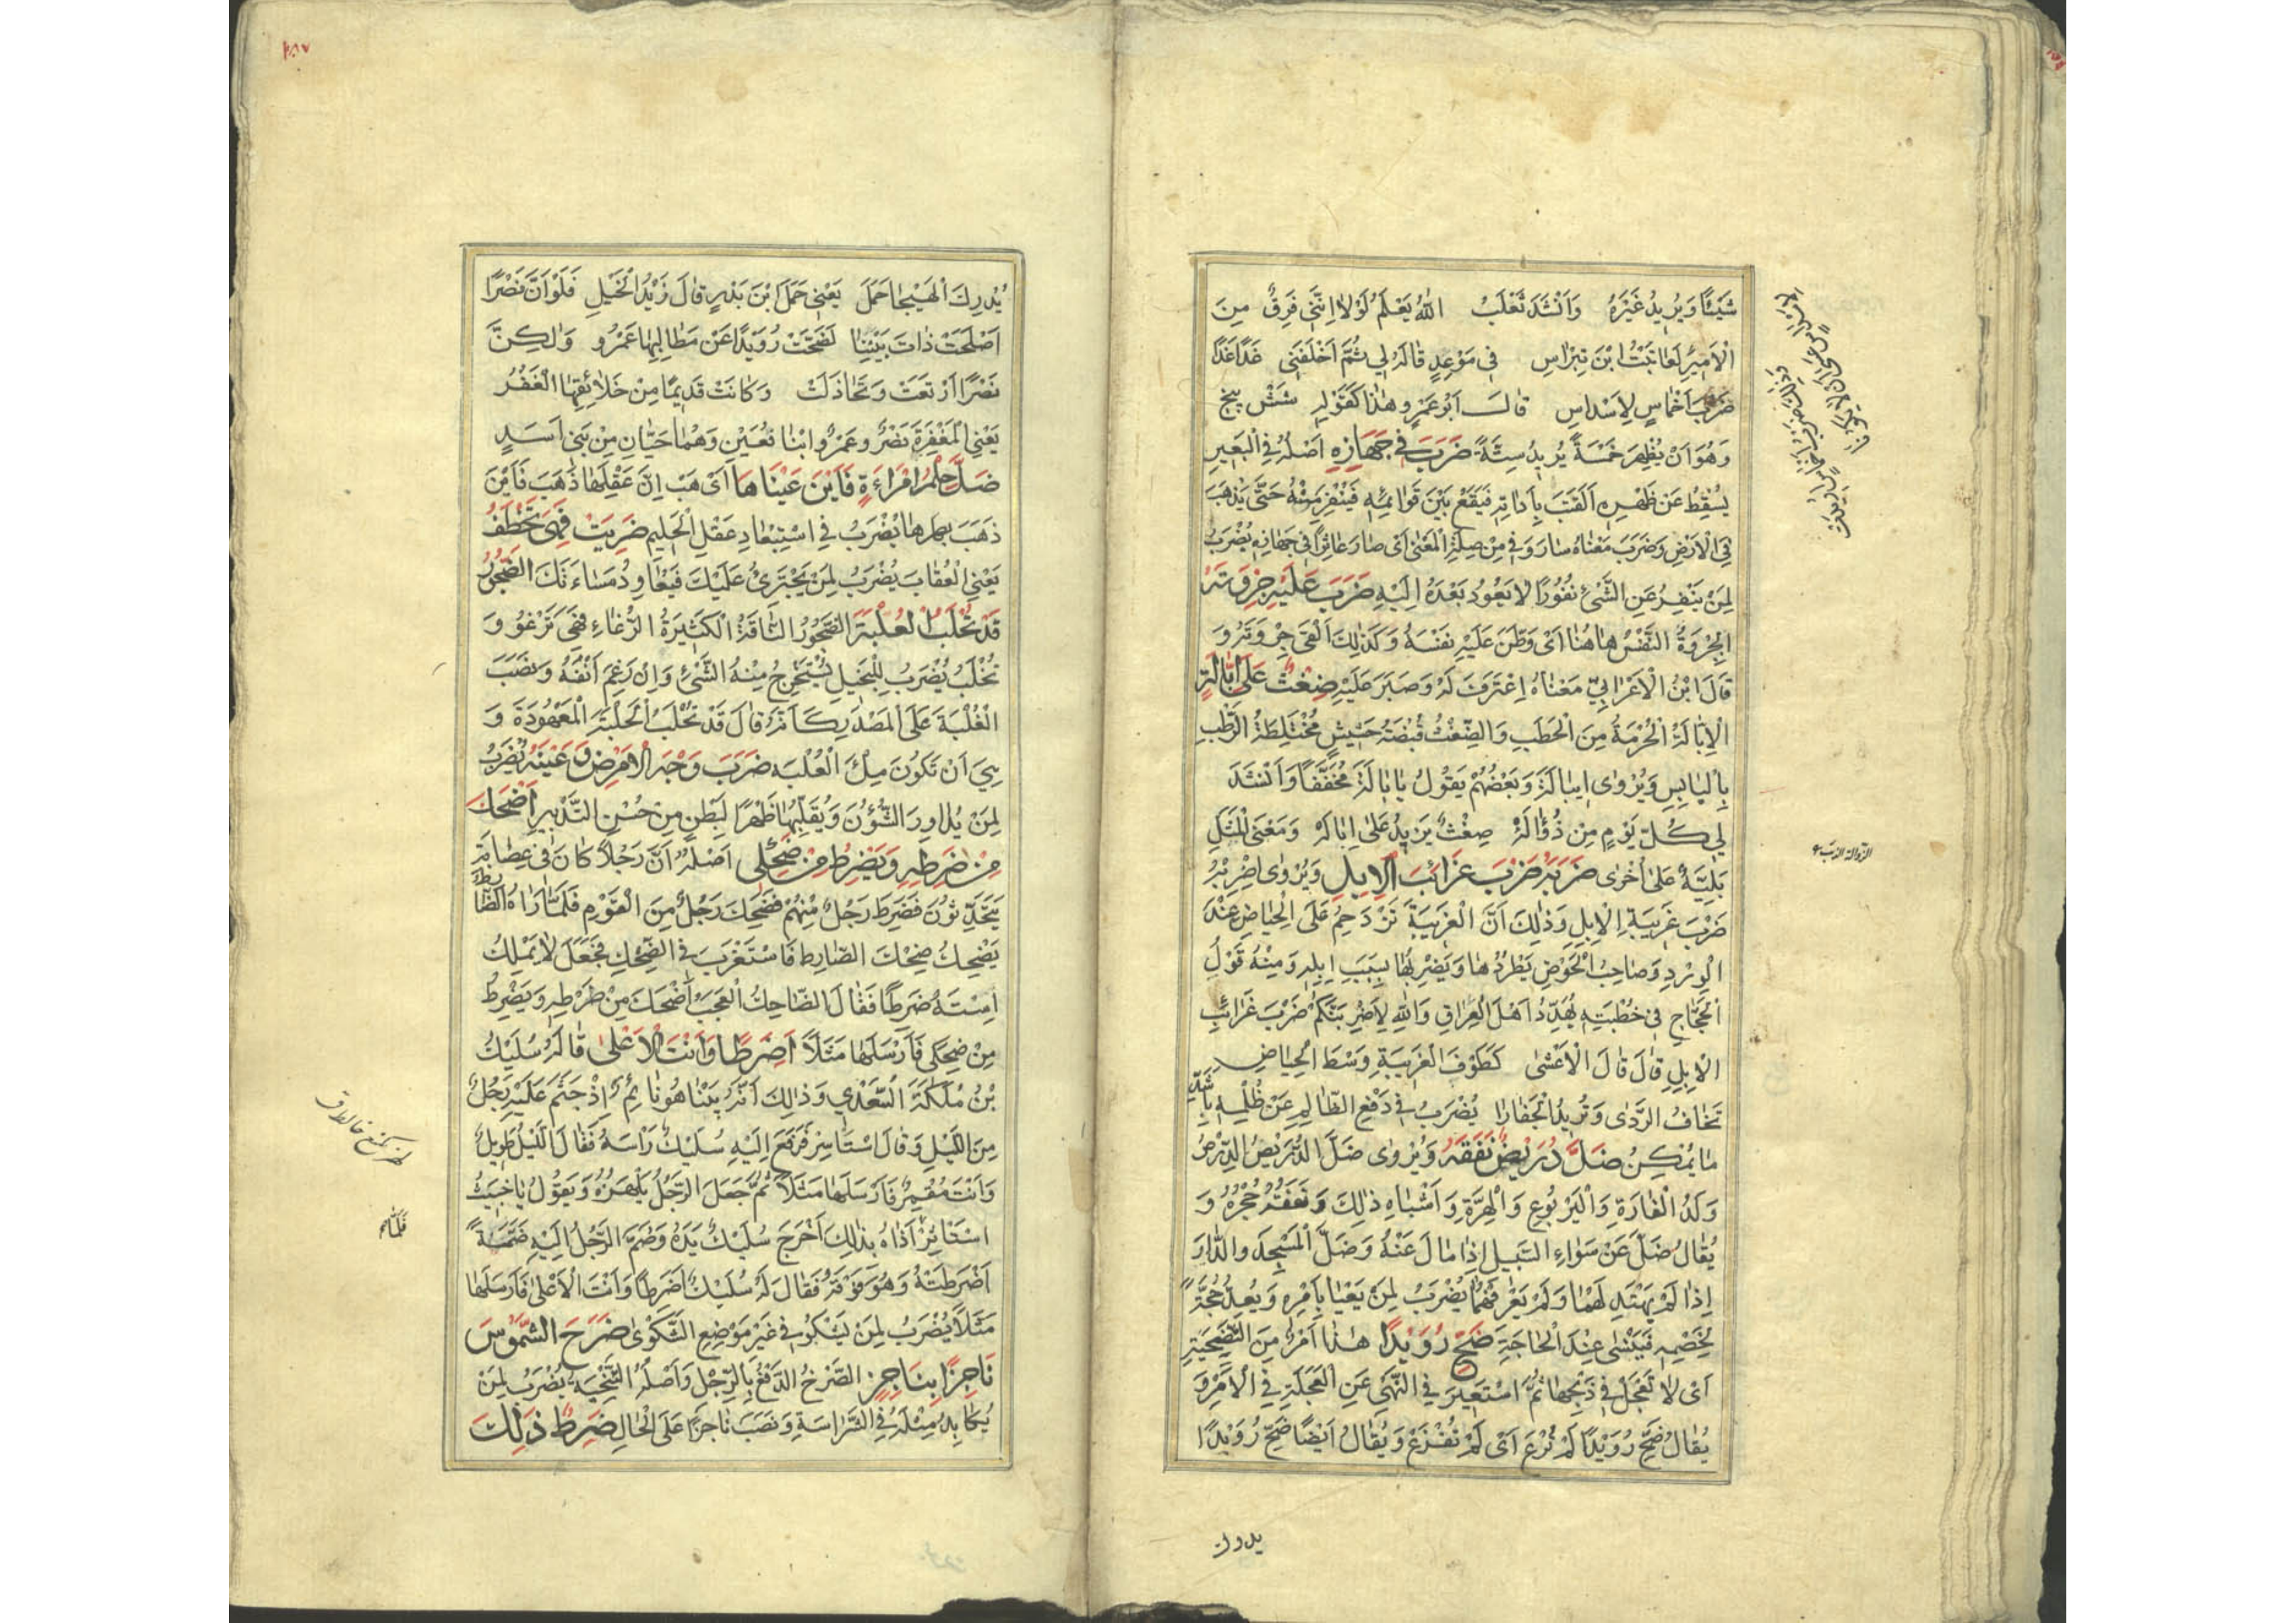 شَيْئًا وَيُرِيدُ غَيْرَهُ وَاَنْشَدَ ثَعْلَبْ اَللهُ يَعْلَمُ لَوْلَا اِنَّنِي فَرِقٌ مِنَ
الْاَمِيرِ لَعَاتَبْتُ ابْنَ نِبْرَاسِ فِي مَوْعِدٍ قَالَهُ لِي ثُمَّ اَخْلَفَنِي غَدًا غَدًا
ضَرْبَ اَخْمَاسٍ لِاَسْدَاسِ قَالَ اَبُو عَمْرٍو هٰذَا كَقَوْلِهِ شش پنج
وَهُوَ اَنْ يُظْهِرَ خَمْسَةً يُرِيدُ سِتَّةً ضَرَبَ فِي جَهَازِهِ اَصْلُهُ فِي الْبَعِيرِ
يَسْقُطُ عَنْ ظَهْرِهِ الْقَتَبُ بِاَدَاتِهِ فَيَقَعُ بَيْنَ قَوَائِمِهِ فَيَنْفِرُ مِنْهُ حَتّٰى يَذْهَبَ
فِي الْاَرْضِ وَضَرَبَ مَعْنَاهُ سَارَ وَفِي مِنْ صِلَةِ الْمَعْنٰى اَيْ صَارَ عَاثِرًا فِي جَهَازِهِ يُضْرَبُ
لِمَنْ يَنْفِرُ عَنِ الشَّيْءِ نُفُورًا لَا يَعُودُ بَعْدَهُ اِلَيْهِ ضَرَبَ عَلَيْهِ جِرْوَتَهُ
الْجِرْوَةُ النَّفْسُ هَاهُنَا اَيْ وَطَّنَ عَلَيْهِ نَفْسَهُ وَكَذٰلِكَ اَلْقٰى جِرْوَتَهُ وَ
قَالَ ابْنُ الْاَعْرَابِيِّ مَعْنَاهُ اِعْتَرَفَ لَهُ وَصَبَرَ عَلَيْهِ ضِغْثٌ عَلٰى اِبَّالَةٍ
الْاِبَّالَةُ الْحُزْمَةُ مِنَ الْحَطَبِ وَالضِّغْثُ قُبْضَةُ حَشِيشٍ مُخْتَلِطَةُ الرَّطْبِ
بِالْيَابِسِ وَيُرْوٰى اِيبَالَةَ وَبَعْضُهُمْ يَقُولُ يَابَالَةَ مُخَفَّفًا وَاَنْشَدَ
لِي كُلَّ يَوْمٍ مِنْ ذُؤَالَةْ ضِغْثٌ يَزِيدُ عَلٰى اِبَالَهْ وَمَعْنَى الْمَثَلِ
بَلِيَّةٌ عَلٰى اُخْرٰى ضَرَبَهُ ضَرْبَ غَرَائِبِ الْاِبِلِ وَيُرْوٰى اضْرِبْهُ
ضَرْبَ غَرِيبَةِ الْاِبِلِ وَذٰلِكَ اَنَّ الْغَرِيبَةَ تَزْدَحِمُ عَلَى الْحِيَاضِ عِنْدَ
الْوِرْدِ وَصَاحِبُ الْحَوْضِ يَطْرُدُهَا وَيَضْرِبُهَا بِسَبَبِ اِبِلِهِ وَمِنْهُ قَوْلُ
الْحَجَّاجِ فِي خُطْبَتِهِ يُهَدِّدُ اَهْلَ الْعِرَاقِ وَاللهِ لَاَضْرِبَنَّكُمْ ضَرْبَ غَرَائِبِ
الْاِبِلِ قَالَ قَالَ الْاَعْشٰى كَطَوْفِ الْغَرِيبَةِ وَسْطَ الْحِيَاضِ
تَخَافُ الرَّدٰى وَتُرِيدُ الْجِفَارَا يُضْرَبُ فِي دَفْعِ الظَّالِمِ عَنْ ظُلْمِهِ بِاَشَدِّ
مَا يُمْكِنُ ضَلَّ دُرَيْصٌ نَفَقَهُ وَيُرْوٰى ضَلَّ الدُّرَيْصُ الدِّرْصُ
وَلَدُ الْفَارَةِ وَالْيَرْبُوعِ وَالْهِرَّةِ وَاَشْبَاهِ ذٰلِكَ وَنَفَقُهُ جُحْرُهُ وَ
يُقَالُ ضَلَّ عَنْ سَوَاءِ السَّبِيلِ اِذَا مَالَ عَنْهُ وَضَلَّ الْمَسْجِدَ وَالدَّارَ
اِذَا لَمْ يَهْتَدِ لَهُمَا وَلَمْ يَعْرِفْهُمَا يُضْرَبُ لِمَنْ يَعْيَا بِاَمْرِهِ وَيُعِدُّ حُجَّةً
لِخَصْمِهِ فَيَنْسٰى عِنْدَ الْحَاجَةِ ضَحِّ رُوَيْدًا هٰذَا اَمْرٌ مِنَ التَّضْحِيَةِ
اَيْ لَا تَعْجَلْ فِي ذَبْحِهَا ثُمَّ اسْتُعِيرَ فِي النَّهْيِ عَنِ الْعَجَلَةِ فِي الْاَمْرِ وَ
يُقَالُ ضَحِّ رُوَيْدًا لَمْ تُرَعْ اَيْ لَمْ تُفْزَعْ وَيُقَالُ اَيْضًا ضَحِّ رُوَيْدًا
يدرك
يُدْرِكِ الْهَيْجَا حَمَلْ يَعْنِي حَمَلَ ابْنَ بَدْرٍ قَالَ زَيْدُ الْخَيْلِ فَلَوْ اَنَّ نَصْرًا
اَصْلَحَتْ ذَاتَ بَيْنِنَا لَضَحَّتْ رُوَيْدًا عَنْ مَطَالِبِهَا عَمْرُو وَلٰكِنَّ
نَصْرًا اَرْتَعَتْ وَتَخَاذَلَتْ وَكَانَتْ قَدِيمًا مِنْ خَلَائِقِهَا الْغَفْرُ
يَعْنِي الْمَغْفِرَةَ نَصْرٌ وَعَمْرٌو ابْنَا قُعَيْنٍ وَهُمَا حَيَّانِ مِنْ بَنِي اَسَدٍ
ضَلَّ حِلْمُ امْرَاَةٍ فَاَيْنَ عَيْنَاهَا اَيْ هَبْ اِنَّ عَقْلَهَا ذَهَبَ فَاَيْنَ
ذَهَبَ بصرها يُضْرَبُ فِي اسْتِبْعَادِ عَقْلِ الْحَلِيمِ ضَرِيَتْ فَهِيَ تَخْطَفُ
يَعْنِي الْعُقَابَ يُضْرَبُ لِمَنْ يَجْتَرِئُ عَلَيْكَ فَيُعَاوِدُ مَسَاءَتَكَ الضَّجُورُ
قَدْ تُحْلَبُ الْعُلْبَةَ الضَّجُورُ النَّاقَةُ الْكَثِيرَةُ الرُّغَاءِ فَهِيَ تَرْغُو وَ
تُحْلَبُ يُضْرَبُ لِلْبَخِيلِ يُسْتَخْرَجُ مِنْهُ الشَّيْءُ وَاِنْ رَغِمَ اَنْفُهُ وَنَصَبَ
الْعُلْبَةَ عَلَى الْمَصْدَرِ كَاَنَّهُ قَالَ قَدْ تُحْلَبُ الْحَلْبَةَ الْمَعْهُودَةَ وَ
هِيَ اَنْ تَكُونَ مِلْءَ الْعُلْبَةِ ضَرَبَ وَجْهَ الْاَمْرِ وَعَيْنَهُ يُضْرَبُ
لِمَنْ يُدَاوِرُ الشُّؤُنَ وَيُقَلِّبُهَا ظَهْرًا لِبَطْنٍ مِنْ حُسْنِ التَّدْبِيرِ اَضْحَكُ
مِنْ ضَرِطِهِ وَيَضْرِطُ مِنْ ضَحِكِي اَصْلُهُ اَنَّ رَجُلًا كَانَ فِي عِصَابَةٍ
يَتَحَدَّثُونَ فَضَرِطَ رَجُلٌ مِنْهُمْ فَضَحِكَ رَجُلٌ مِنَ الْقَوْمِ فَلَمَّا رَاٰهُ الضَّارِطُ
يَضْحَكُ ضَحِكَ الضَّارِطُ فَاسْتَغْرَبَ فِي الضَّحِكِ فَجَعَلَ لَا يَمْلِكُ
اِسْتَهُ ضَرِطًا فَقَالَ الضَّاحِكُ الْعَجَبُ اَضْحَكُ مِنْ ضَرْطِهِ وَيَضْرِطُ
مِنْ ضَحِكِي فَاَرْسَلَهَا مَثَلًا اَضَرِطًا وَاَنْتَ الْاَعْلٰى قَالَهُ سُلَيْكُ
بْنُ سُلَكَةَ السَّعْدِي وَذٰلِكَ اَنَّهُ بَيْنَا هُوَ نَائِمٌ اِذْ جَثَمَ عَلَيْهِ رَجُلٌ
مِنَ اللَّيْلِ وَقَالَ اسْتَاسِرْ فَرَفَعَ اِلَيْهِ سُلَيْكٌ رَاْسَهُ فَقَالَ اللَّيْلُ طَوِيلٌ
وَاَنْتَ مُقْمِرٌ فَاَرْسَلَهَا مَثَلًا ثُمَّ جَعَلَ الرَّجُلُ يَلْهَزُهُ وَيَقُولُ يَا خَبِيثُ
اسْتَاْسِرْ اَذَاهُ بِذٰلِكَ اَخْرَجَ سُلَيْكٌ يَدَهُ وَضَمَّ الرَّجُلَ اِلَيْهِ ضَمَّةً
اَضْرَطَتْهُ وَهُوَ فَوْقَهُ فَقَالَ لَهُ سُلَيْكٌ اَضَرِطًا وَاَنْتَ الْاَعْلٰى فَاَرْسَلَهَا
مَثَلًا يُضْرَبُ لِمَنْ يَشْكُو فِي غَيْرِ مَوْضِعِ الشَّكْوٰى ضَرَحَ الشَّمُوسَ
نَاجِزًا بِنَاجِزٍ الضَّرْحُ الدَّفْعُ بِالرِّجْلِ وَاَصْلُهُ التَّنْحِيَةُ يُضْرَبُ لِمَنْ
يُكَابِدُ مِثْلَهُ فِي الشَّرَاسَةِ وَنَصَبَ نَاجِزًا عَلَى الْحَالِ ضَرِطُ ذٰلِكَ
فلما